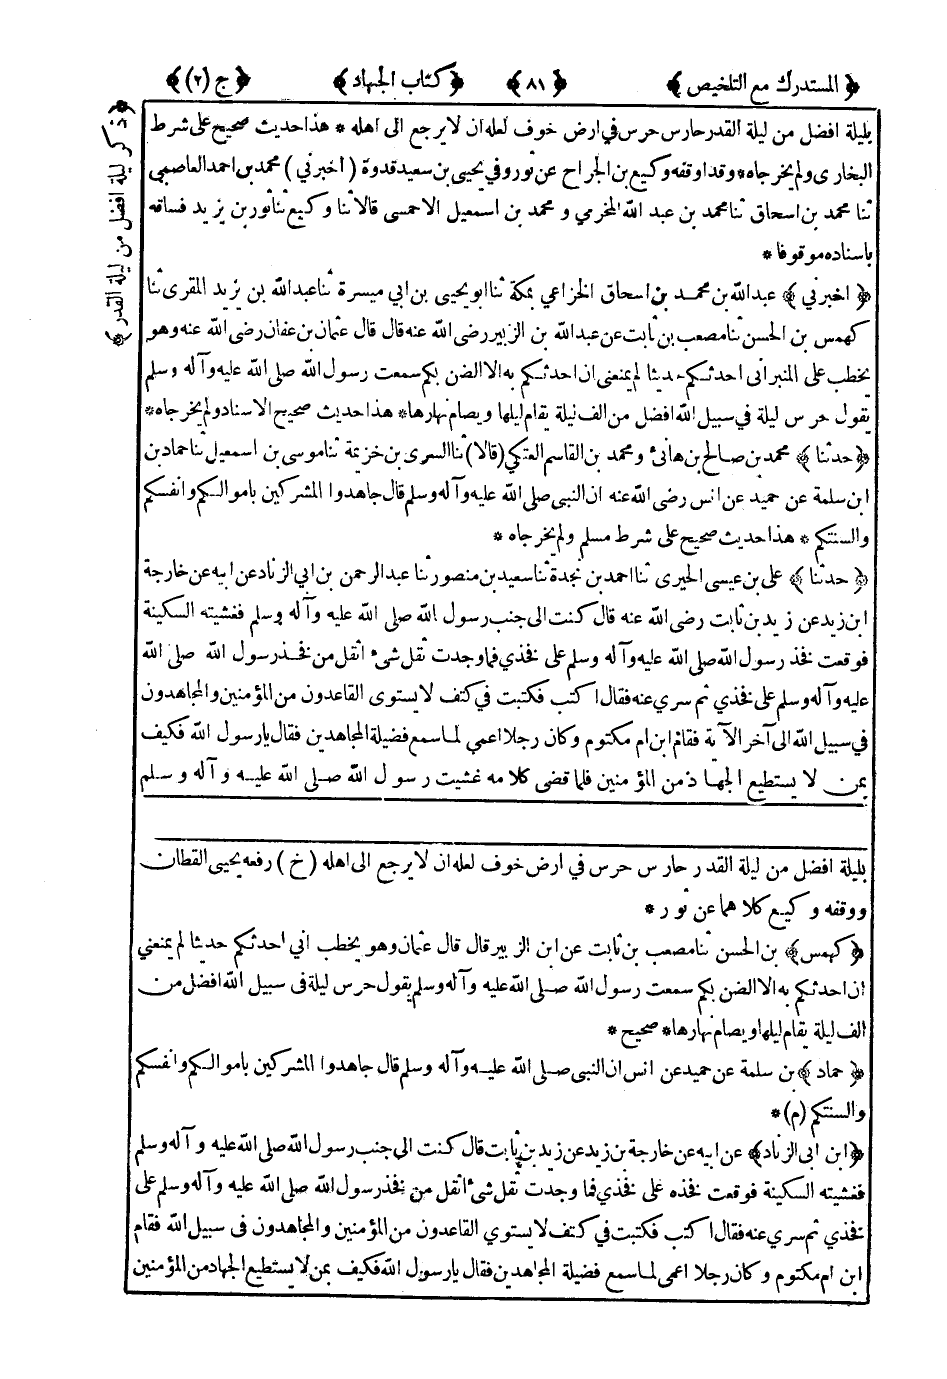 ﴿ المستدرك مع التلخيص ﴾ ﴿ ٨١ ﴾ ﴿ كتاب الجهاد ﴾ ﴿ ج (٢) ﴾
بليلة افضل من ليلة القدر حارس حرس في ارض خوف لعله ان لا يرجع الى اهله * هذا حديث صحيح على شرط
البخارى ولم يخرجاه * وقد اوقفه وكيع بن الجراح عن ثور وفي يحيى بن سعيد قدوة ( اخبرني ) محمد بن احمد العاصمي
ثنا محمد بن اسحاق ثنا محمد بن عبد الله المخرمي و محمد بن اسمعيل الاحمسى قالا ثنا وكيع ثنا ثور بن يزيد فساقه
باسناده موقوفا *
﴿ اخبرني ﴾ عبد الله بن محمد بن اسحاق الخزاعي بمكة ثنا ابو يحيى بن ابي ميسرة ثنا عبد الله بن يزيد المقرى ثنا
كهمس بن الحسن ثنا مصعب بن ثابت عن عبد الله بن الزبير رضى الله عنه قال قال عثمان بن عفان رضى الله عنه وهو
يخطب على المنبر انى احدثكم حديثا لم يمنعنى ان احدثكم به الا الضن بكم سمعت رسول الله صلى الله عليه وآله وسلم
يقول حرس ليلة في سبيل الله افضل من الف ليلة يقام ليلها ويصام نهارها * هذا حديث صحيح الاسناد ولم يخرجاه *
﴿ حدثنا ﴾ محمد بن صالح بن هانئ ومحمد بن القاسم العتكي ( قالا ) ثنا السرى بن خزيمة ثنا موسى بن اسمعيل ثنا حماد بن
ابن سلمة عن حميد عن انس رضى الله عنه ان النبى صلى الله عليه وآله وسلم قال جاهدوا المشركين باموالكم وانفسكم
والسنتكم * هذا حديث صحيح على شرط مسلم ولم يخرجاه *
﴿ حدثنا ﴾ على بن عيسى الحيرى ثنا احمد بن نجدة ثنا سعيد بن منصور ثنا عبد الرحمن بن ابي الزناد عن ابيه عن خارجة
ابن زيد عن زيد بن ثابت رضى الله عنه قال كنت الى جنب رسول الله صلى الله عليه وآله وسلم فغشيته السكينة
فوقعت فخذ رسول الله صلى الله عليه وآله وسلم على فخذي فما وجدت ثقل شىء اثقل من فخذ رسول الله صلى الله
عليه وآله وسلم على فخذي ثم سري عنه فقال اكتب فكتبت في كتف لا يستوى القاعدون من المؤمنين والمجاهدون
في سبيل الله الى آخر الآية فقام ابن ام مكتوم وكان رجلا اعمى لما سمع فضيلة المجاهدين فقال يا رسول الله فكيف
بمن لا يستطيع الجهاد من المؤمنين فلما قضى كلامه غشيت رسول الله صلى الله عليه وآله وسلم
بليلة افضل من ليلة القدر حارس حرس في ارض خوف لعله ان لا يرجع الى اهله ( خ ) رفعه يحيى القطان
ووقفه وكيع كلاهما عن ثور *
﴿ كهمس ﴾ بن الحسن ثنا مصعب بن ثابت عن ابن الزبير قال قال عثمان وهو يخطب اني احدثكم حديثا لم يمنعني
ان احدثكم به الا الضن بكم سمعت رسول الله صلى الله عليه وآله وسلم يقول حرس ليلة فى سبيل الله افضل من
الف ليلة يقام ليلها ويصام نهارها * صحيح *
﴿ حماد ﴾ بن سلمة عن حميد عن انس ان النبى صلى الله عليه وآله وسلم قال جاهدوا المشركين باموالكم وانفسكم
والسنتكم (م) *
﴿ ابن ابى الزناد ﴾ عن ابيه عن خارجة بن زيد عن زيد بن ثابت قال كنت الى جنب رسول الله صلى الله عليه وآله وسلم
فغشيته السكينة فوقعت فخذه على فخذي فما وجدت ثقل شىء اثقل من فخذ رسول الله صلى الله عليه وآله وسلم على
فخذي ثم سري عنه فقال اكتب فكتبت في كتف لا يستوي القاعدون من المؤمنين والمجاهدون فى سبيل الله فقام
ابن ام مكتوم وكان رجلا اعمى لما سمع فضيلة المجاهدين فقال يا رسول الله فكيف بمن لا يستطيع الجهاد من المؤمنين
﴿ ذكر ليلة افضل من ليلة القدر ﴾